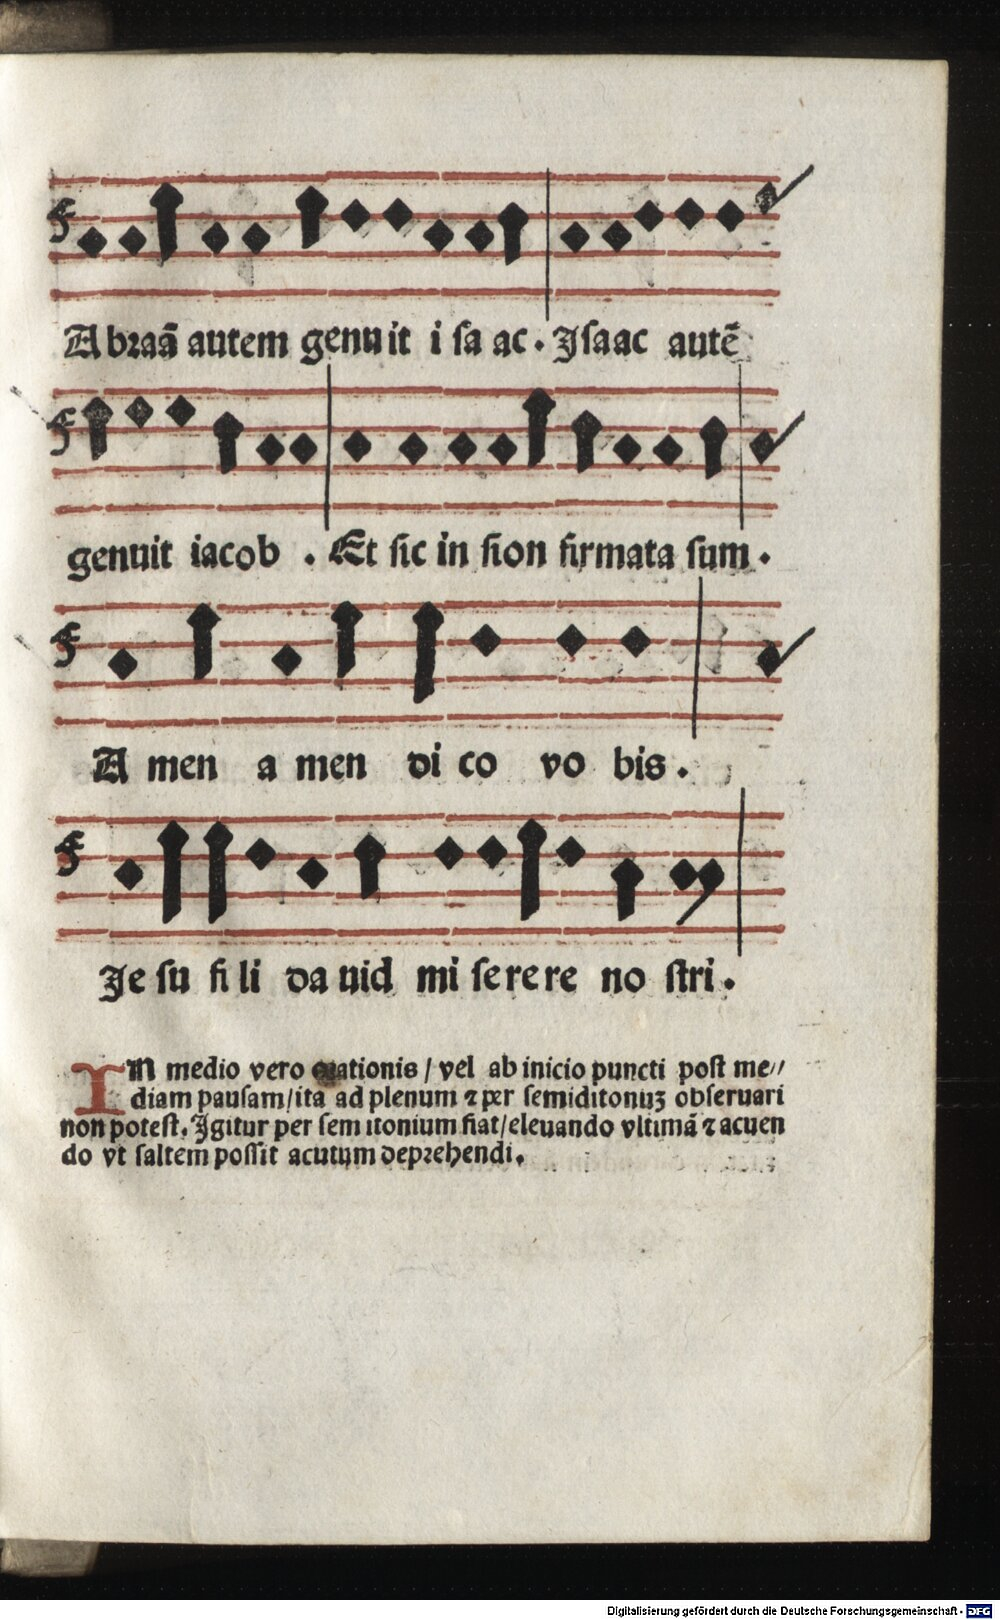 Abraã autem genuit i sa ac. Isaac autẽ
genuit iacob . Et sic in sion firmata sum.
A men a men di co vo bis.
Je su fi li da uid mi se re re no stri.
IN medio vero orationis / vel ab inicio puncti post me//
diam pausam/ita ad plenum ⁊ per semiditonuʒ obseruari
non potest. Igitur per sem itonium fiat/eleuando vltimã ⁊ acuen
do vt saltem possit acutum deprehendi.
Digitalisierung gefördert durch die Deutsche Forschungsgemeinschaft - DFG